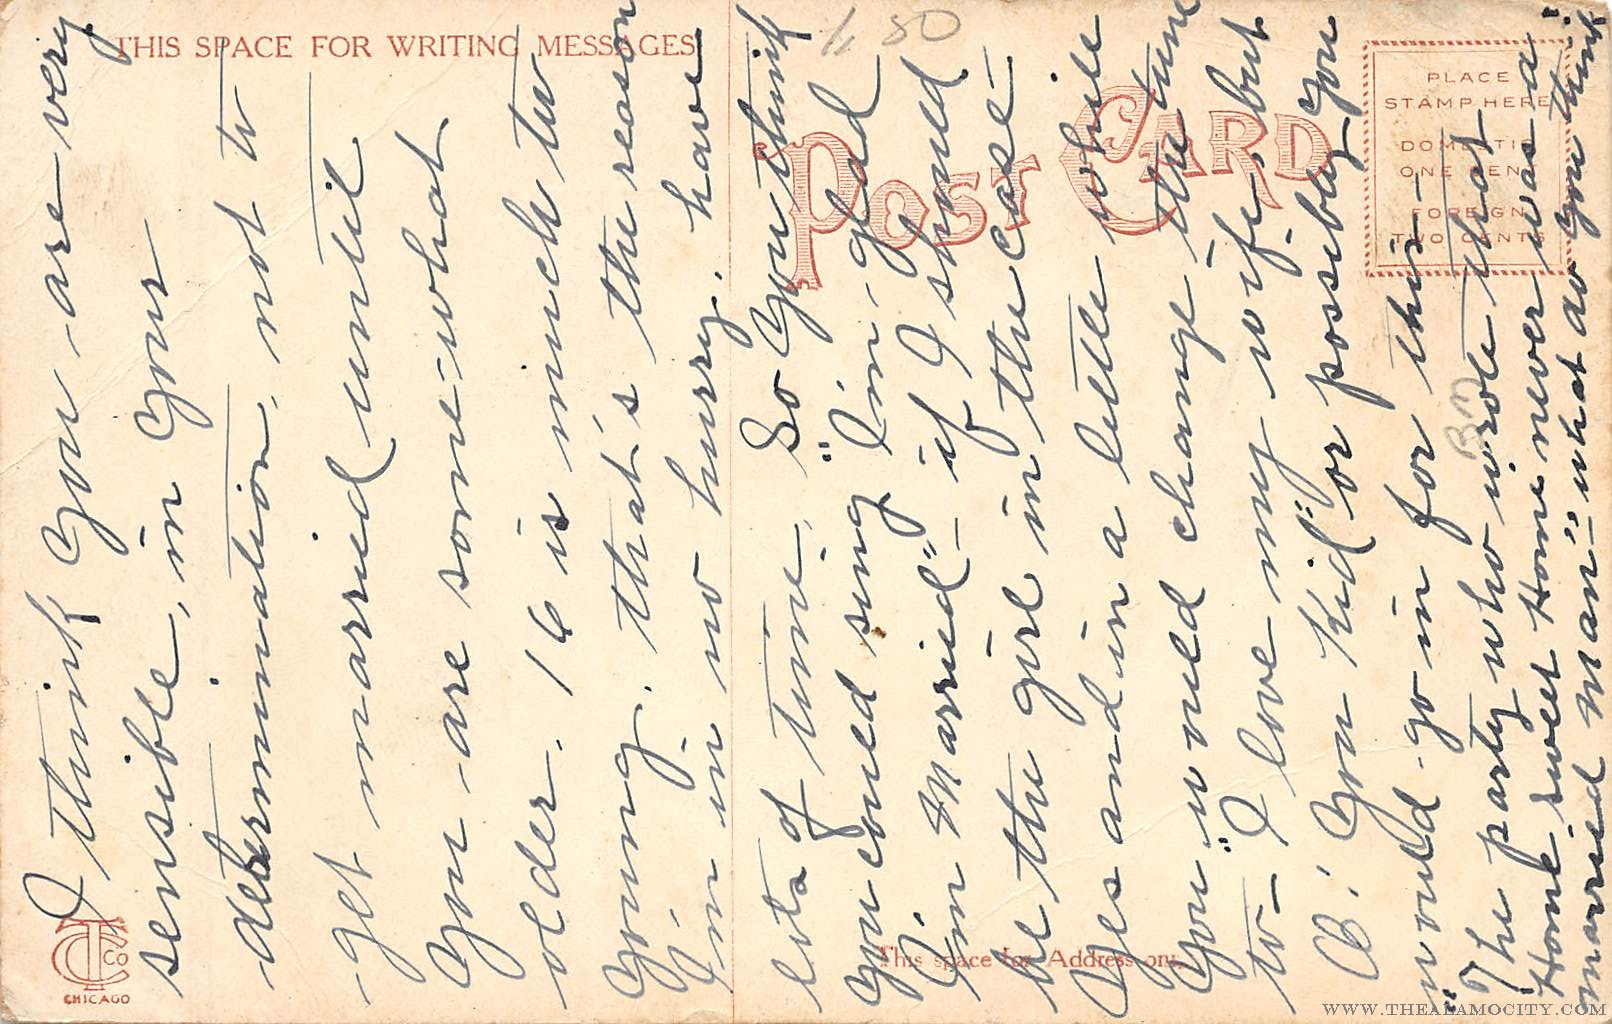 THIS SPACE FOR WRITING MESSAGES
POST CARD
PLACE
STAMP HERE
DOMESTIC
ONE CENT
FOREIGN
TWO CENTS
This space for Address only
CTCCo
CHICAGO
I think you are very
sensible, in your
determination, not to
get married until
you are some-what
older. 16 is much to
young. that's the reason
I'm in no hurry. have
lots of time. So you think
you could sing "I'm glad
I'm Married" - if I should
be the girl in the case -
Yes and in a little while
you would change the tune
to - I love my wife, but
O! You Kid" or possibly you
would go in for this -
"The party who wrote that
Home sweet Home never was a
married man-" what do you think
1 50
WWW.THEALAMOCITY.COM